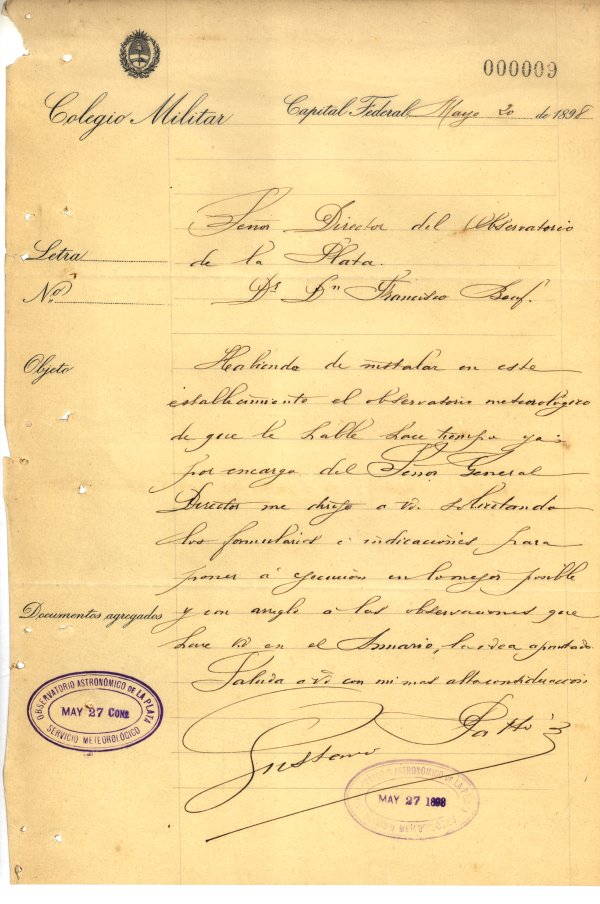 000009
Colegio Militar
Capital Federal, Mayo 20 de 1898
Señor Director del Observatorio
de la Plata.
Letra
Dr Dn Francisco Beuf.
No.
Objeto
Habiendo de instalar en este
establecimiento el observatorio meteorológico
de que le hablé hace tiempo ya
por encargo del Señor General
Director me dirijo a Vd. solicitando
los formularios é indicaciones para
poner á ejecucion en lo mejor posible
Documentos agregados
y con arreglo á las observaciones que
hace Vd en el Anuario, la idea apuntada.
Saluda a Vd con mi mas alta consideracion.
Gustavo
OBSERVATORIO ASTRONÓMICO DE LA PLATA
MAY 27
SERVICIO METEOROLÓGICO
OBSERVATORIO ASTRONÓMICO DE LA PLATA
MAY 27 1898
SERVICIO METEOROLÓGICO